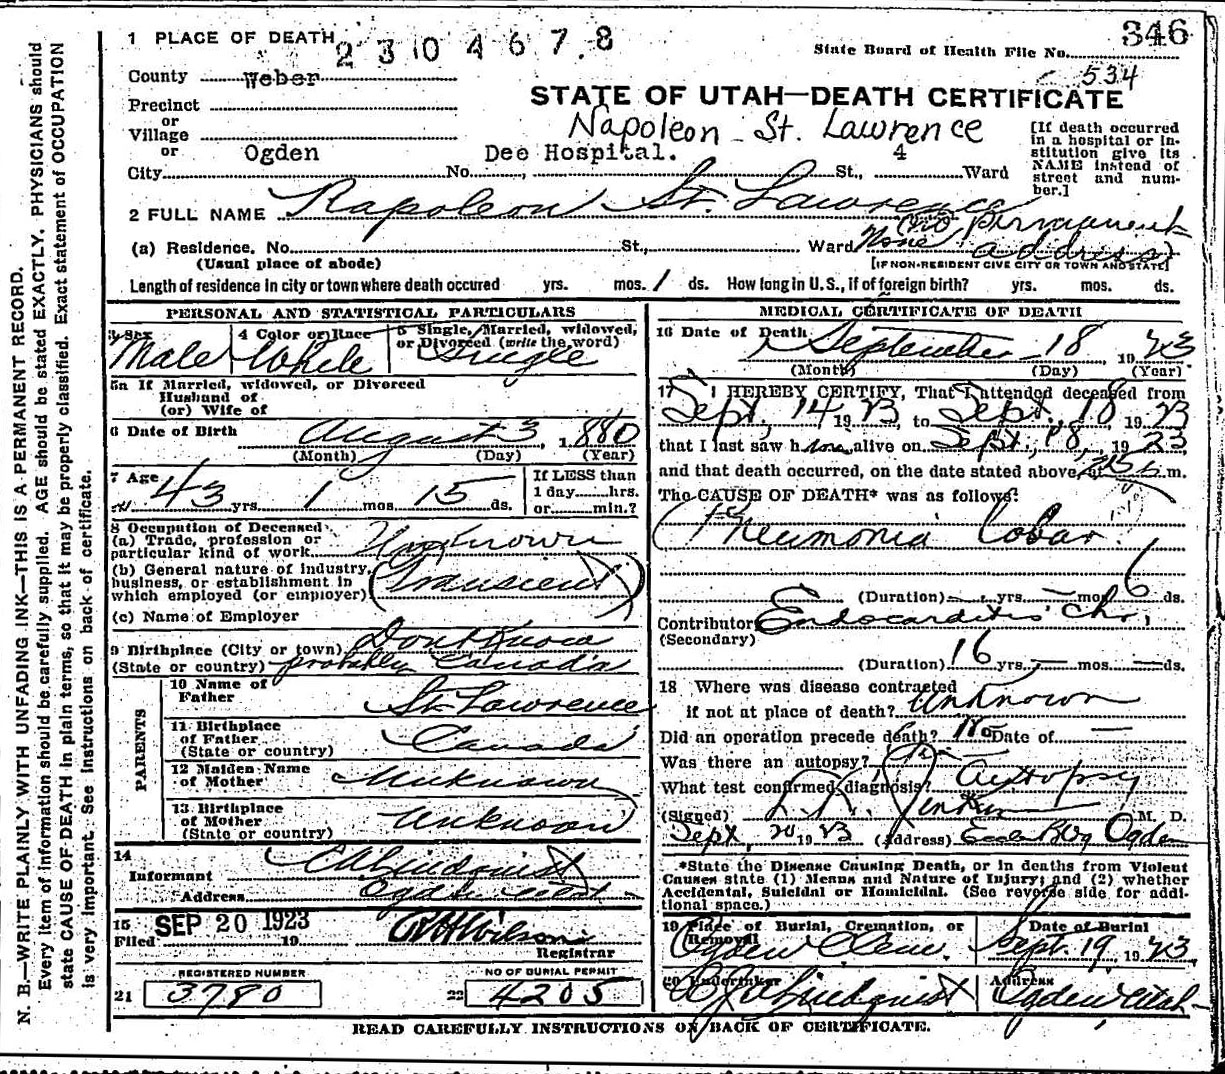 346
1 PLACE OF DEATH 2 3 10 4 6 7 8
State Board of Health File No.
534
County Weber
STATE OF UTAH—DEATH CERTIFICATE
Precinct
or
Village
or
Napoleon St. Lawrence
[If death occurred in a hospital or institution give its NAME instead of street and number.]
City Ogden No. Dee Hospital. St., 4 Ward
2 FULL NAME Napoleon St. Lawrence
(a) Residence, No. St., Ward None (no permanent address)
(Usual place of abode) [IF NON-RESIDENT GIVE CITY OR TOWN AND STATE]
Length of residence in city or town where death occured yrs. mos. 1 ds. How long in U. S., if of foreign birth? yrs. mos. ds.
PERSONAL AND STATISTICAL PARTICULARS
3 Sex Male
4 Color or Race White
5 Single, Married, widowed, or Divorced (write the word) Single
5a If Married, widowed, or Divorced
Husband of
(or) Wife of
6 Date of Birth August 3, 1880
(Month) (Day) (Year)
7 Age 43 yrs. 1 mos. 15 ds.
If LESS than
1 day hrs.
or min.?
8 Occupation of Deceased
(a) Trade, profession or particular kind of work Unknown
(b) General nature of industry, business, or establishment in which employed (or employer) (Transient)
(c) Name of Employer
9 Birthplace (City or town) Dont Know
(State or country) probably Canada
PARENTS
10 Name of Father St. Lawrence
11 Birthplace of Father (State or country) Canada
12 Maiden Name of Mother Unknown
13 Birthplace of Mother (State or country) Unknown
14
Informant Lindquist
Address Ogden Utah
15
Filed SEP 20 1923 19
Wilson
Registrar
REGISTERED NUMBER
21 3780
NO OF BURIAL PERMIT
22 4205
MEDICAL CERTIFICATE OF DEATH
16 Date of Death September 18, 1923
(Month) (Day) (Year)
17 I HEREBY CERTIFY, That I attended deceased from
Sept. 14 1923, to Sept. 18 1923
that I last saw him alive on Sept. 18, 1923
and that death occurred, on the date stated above, at m.
The CAUSE OF DEATH* was as follows:
Pneumonia Lobar.
(Duration) yrs. mos. 6 ds.
Contributory Endocarditis Chr.
(Secondary)
(Duration) 16 yrs. mos. ds.
18 Where was disease contracted
if not at place of death? Unknown
Did an operation precede death? No Date of
Was there an autopsy?
What test confirmed diagnosis? Autopsy
(Signed) M. D.
Sept. 20 1923 (Address) Eccles Bldg Ogden
*State the Disease Causing Death, or in deaths from Violent Causes state (1) Means and Nature of Injury; and (2) whether Accidental, Suicidal or Homicidal. (See reverse side for additional space.)
19 Place of Burial, Cremation, or Removal Ogden Cem.
Date of Burial Sept. 19, 1923
20 Undertaker Lindquist
Address Ogden, Utah
READ CAREFULLY INSTRUCTIONS ON BACK OF CERTIFICATE.
N. B.—WRITE PLAINLY WITH UNFADING INK—THIS IS A PERMANENT RECORD.
Every item of information should be carefully supplied. AGE should be stated EXACTLY. PHYSICIANS should
state CAUSE OF DEATH in plain terms, so that it may be properly classified. Exact statement of OCCUPATION
is very important. See instructions on back of certificate.